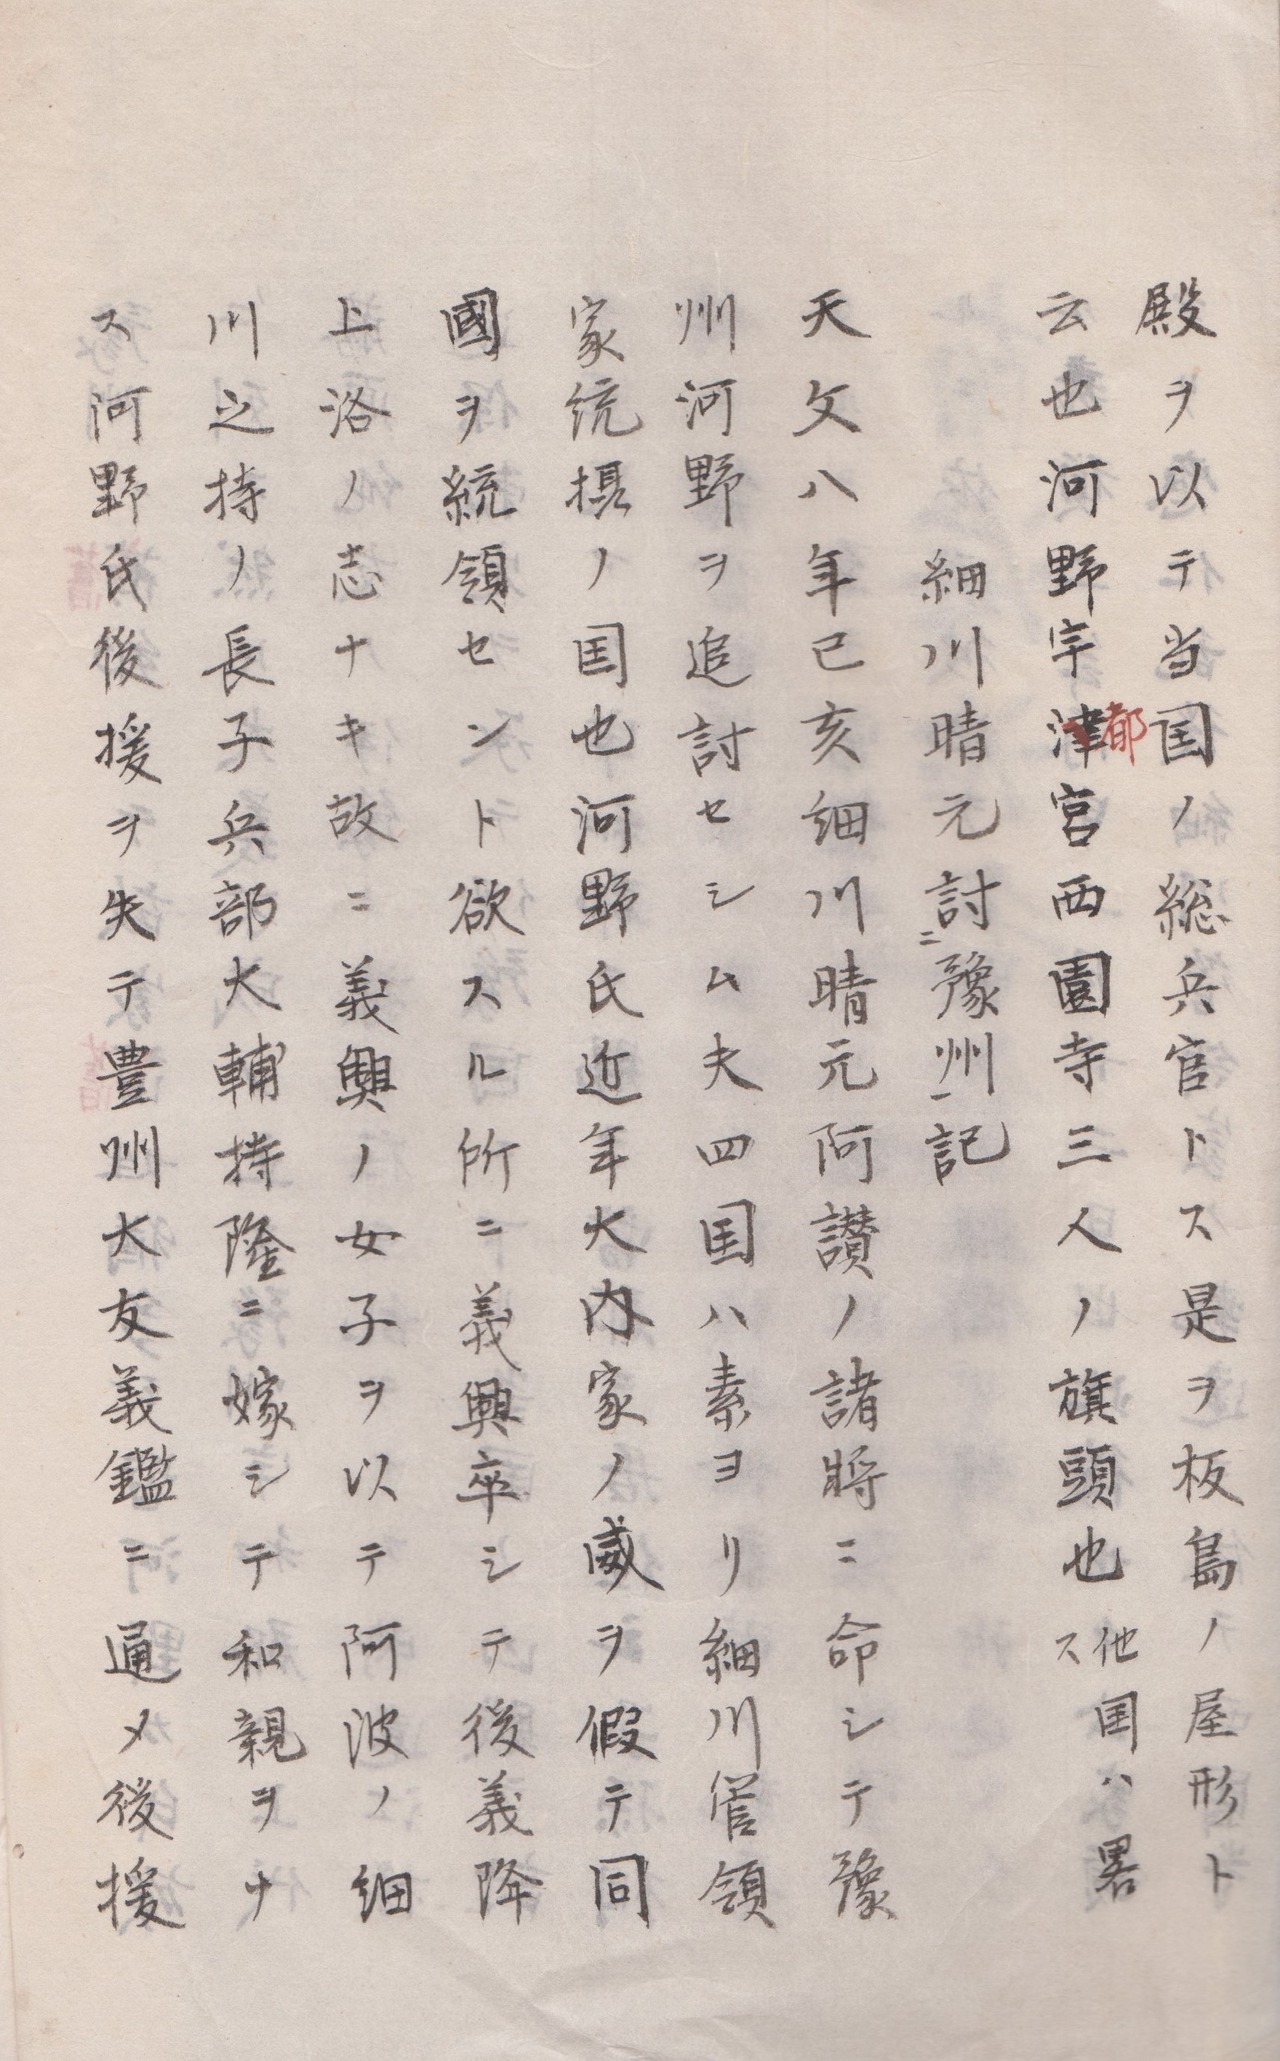 殿ヲ以テ当国ノ総兵官トス是ヲ板島ノ屋形ト
云也河野宇津宮西園寺三人ノ旗頭也他国ハ畧ス
都
細川晴元討二豫州一記
天文八年己亥細川晴元阿讃ノ諸将ニ命シテ豫
州河野ヲ追討セシム夫四国ハ素ヨリ細川管領
家統摂ノ国也河野氏近年大内家ノ威ヲ假テ同
國ヲ統領セント欲スル所ニ義興卒シテ後義降
上洛ノ志ナキ故ニ義興ノ女子ヲ以テ阿波ノ細
川之持ノ長子兵部大輔持隆ニ嫁シテ和親ヲナ
ス河野氏後援ヲ失テ豊州大友義鑑ニ通メ後援